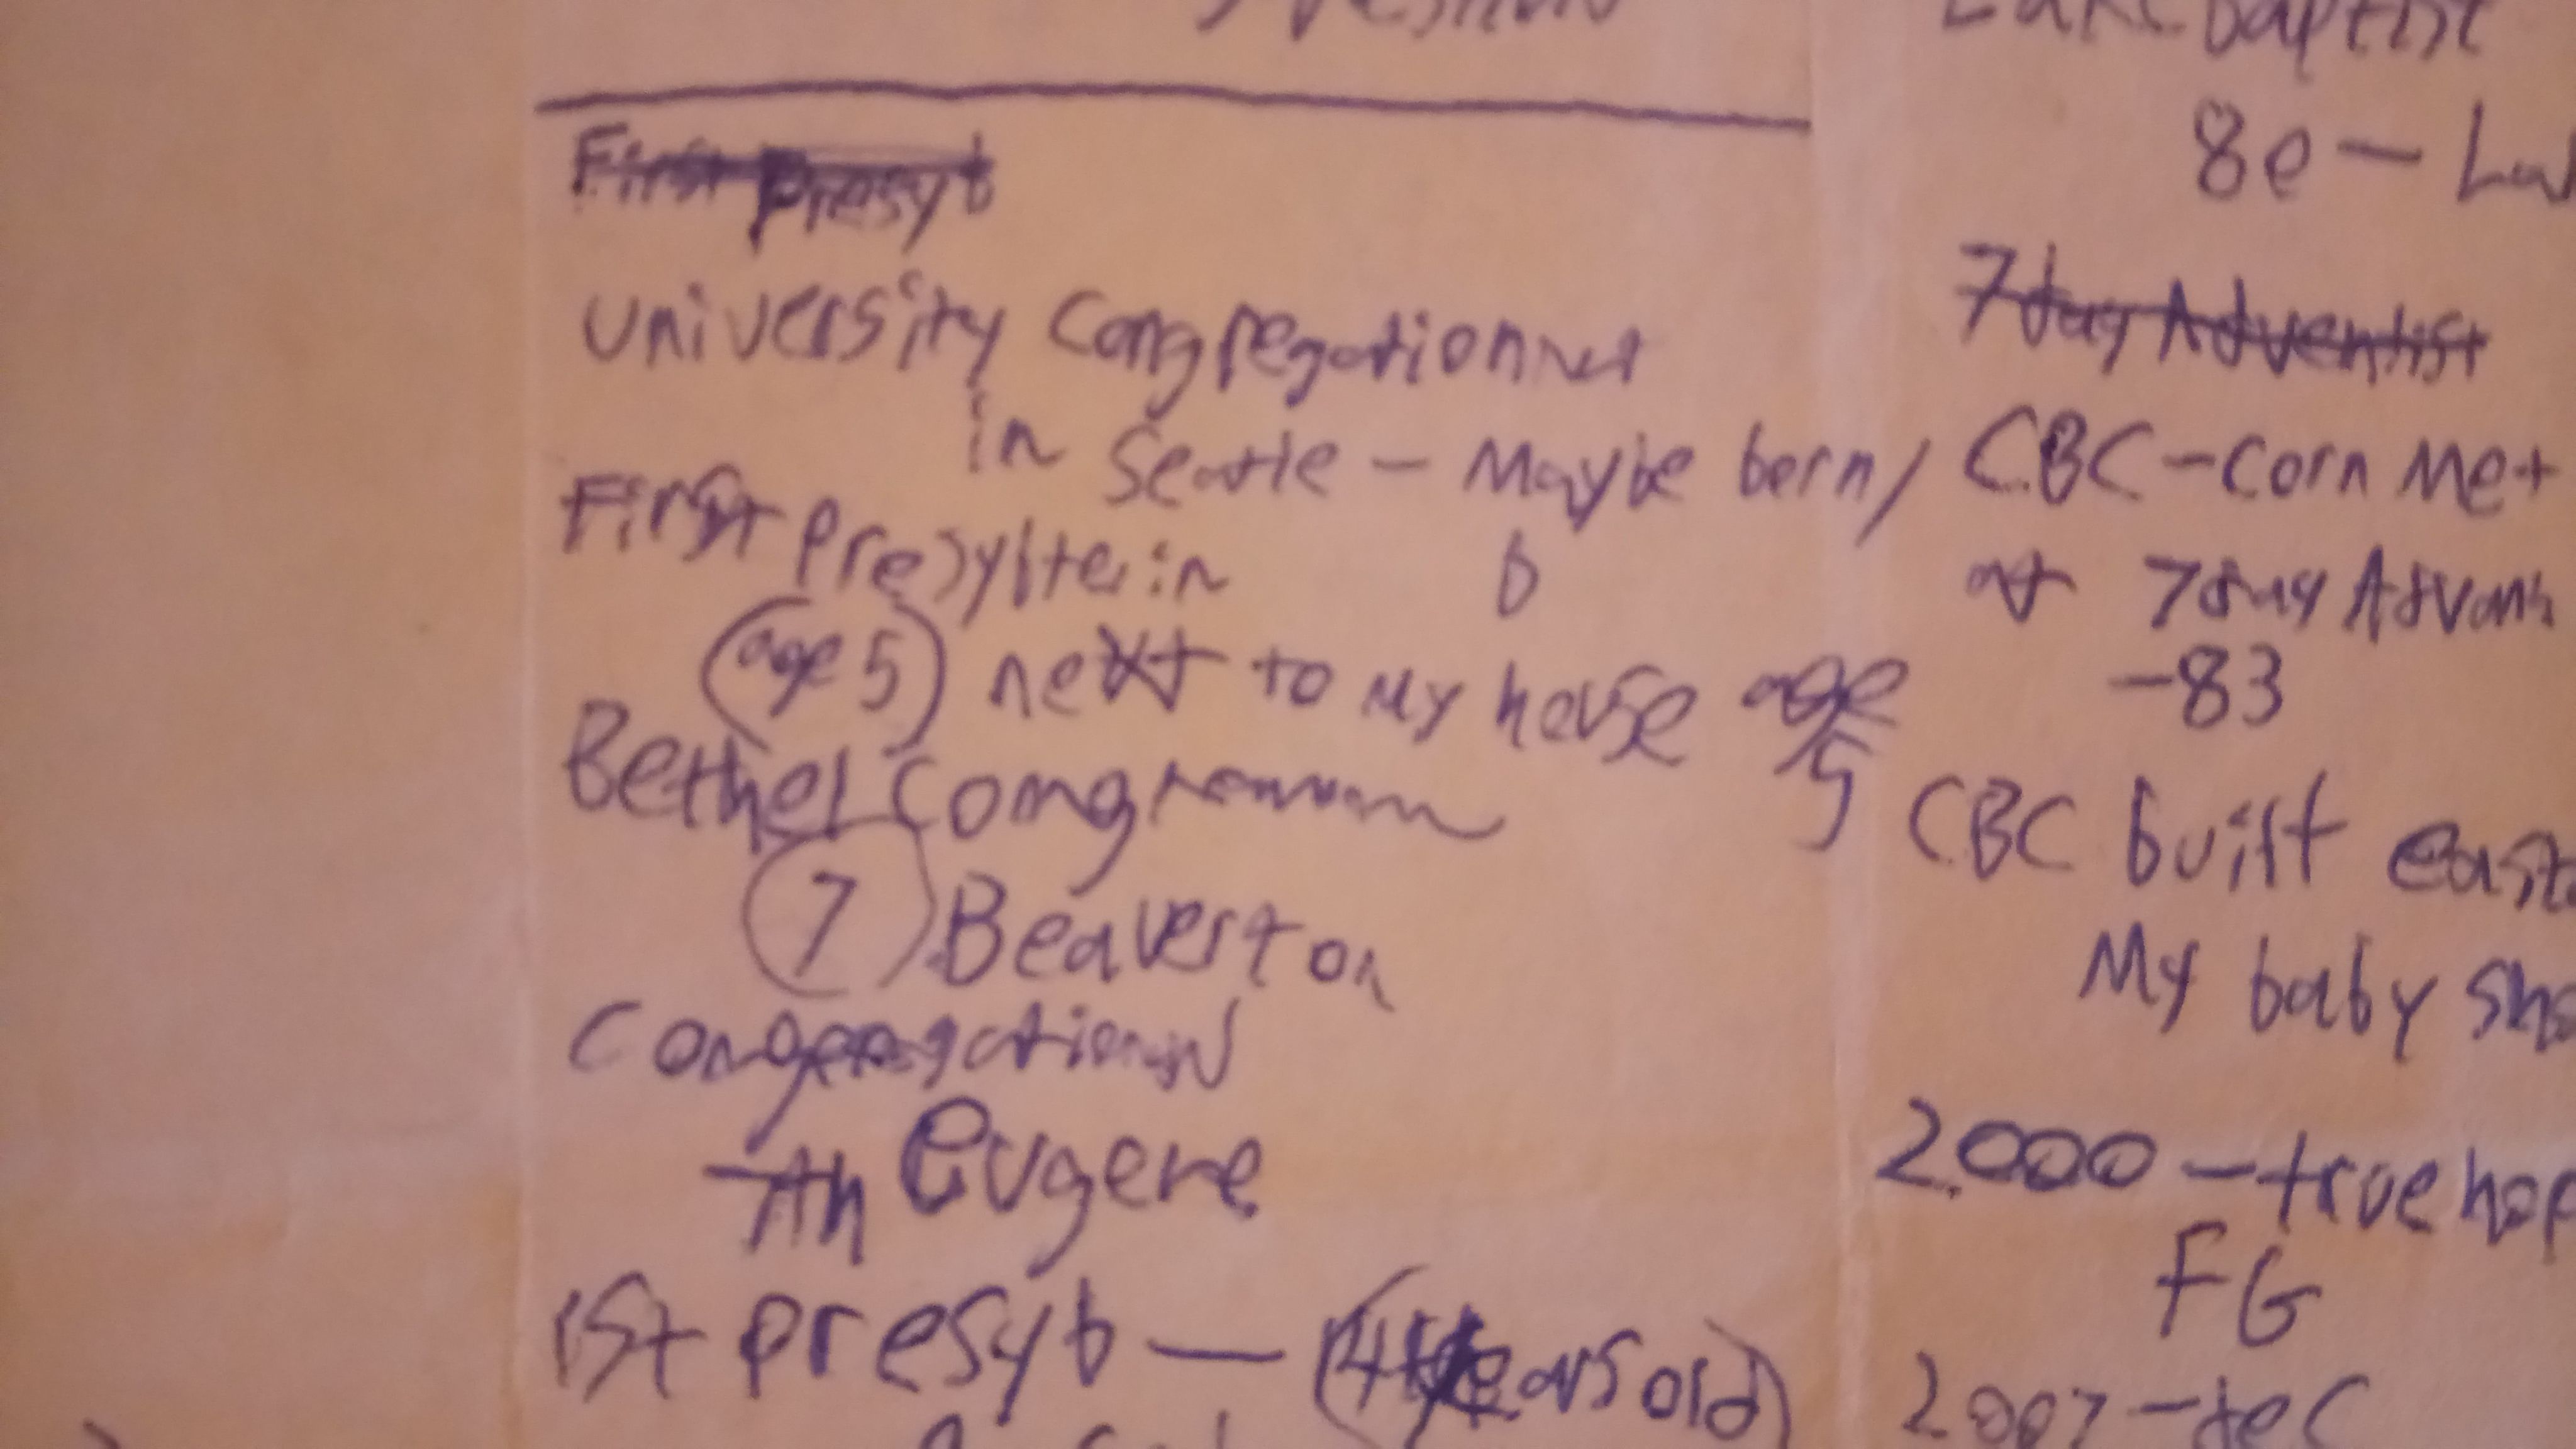 First Presyt
University Congregational
in Seatle - Maybe born/
First Presybterin
b
age 5 next to My house age
5
Bethel
7 Beaverton
Congeregational
in Eugene
1st presyb — (14 years old)
Lake Baptist
80 —
7 day Adventist
CBC - Corn Met
at 7 day
-83
CBC built
My baby
2000 - true
FG
2007 -